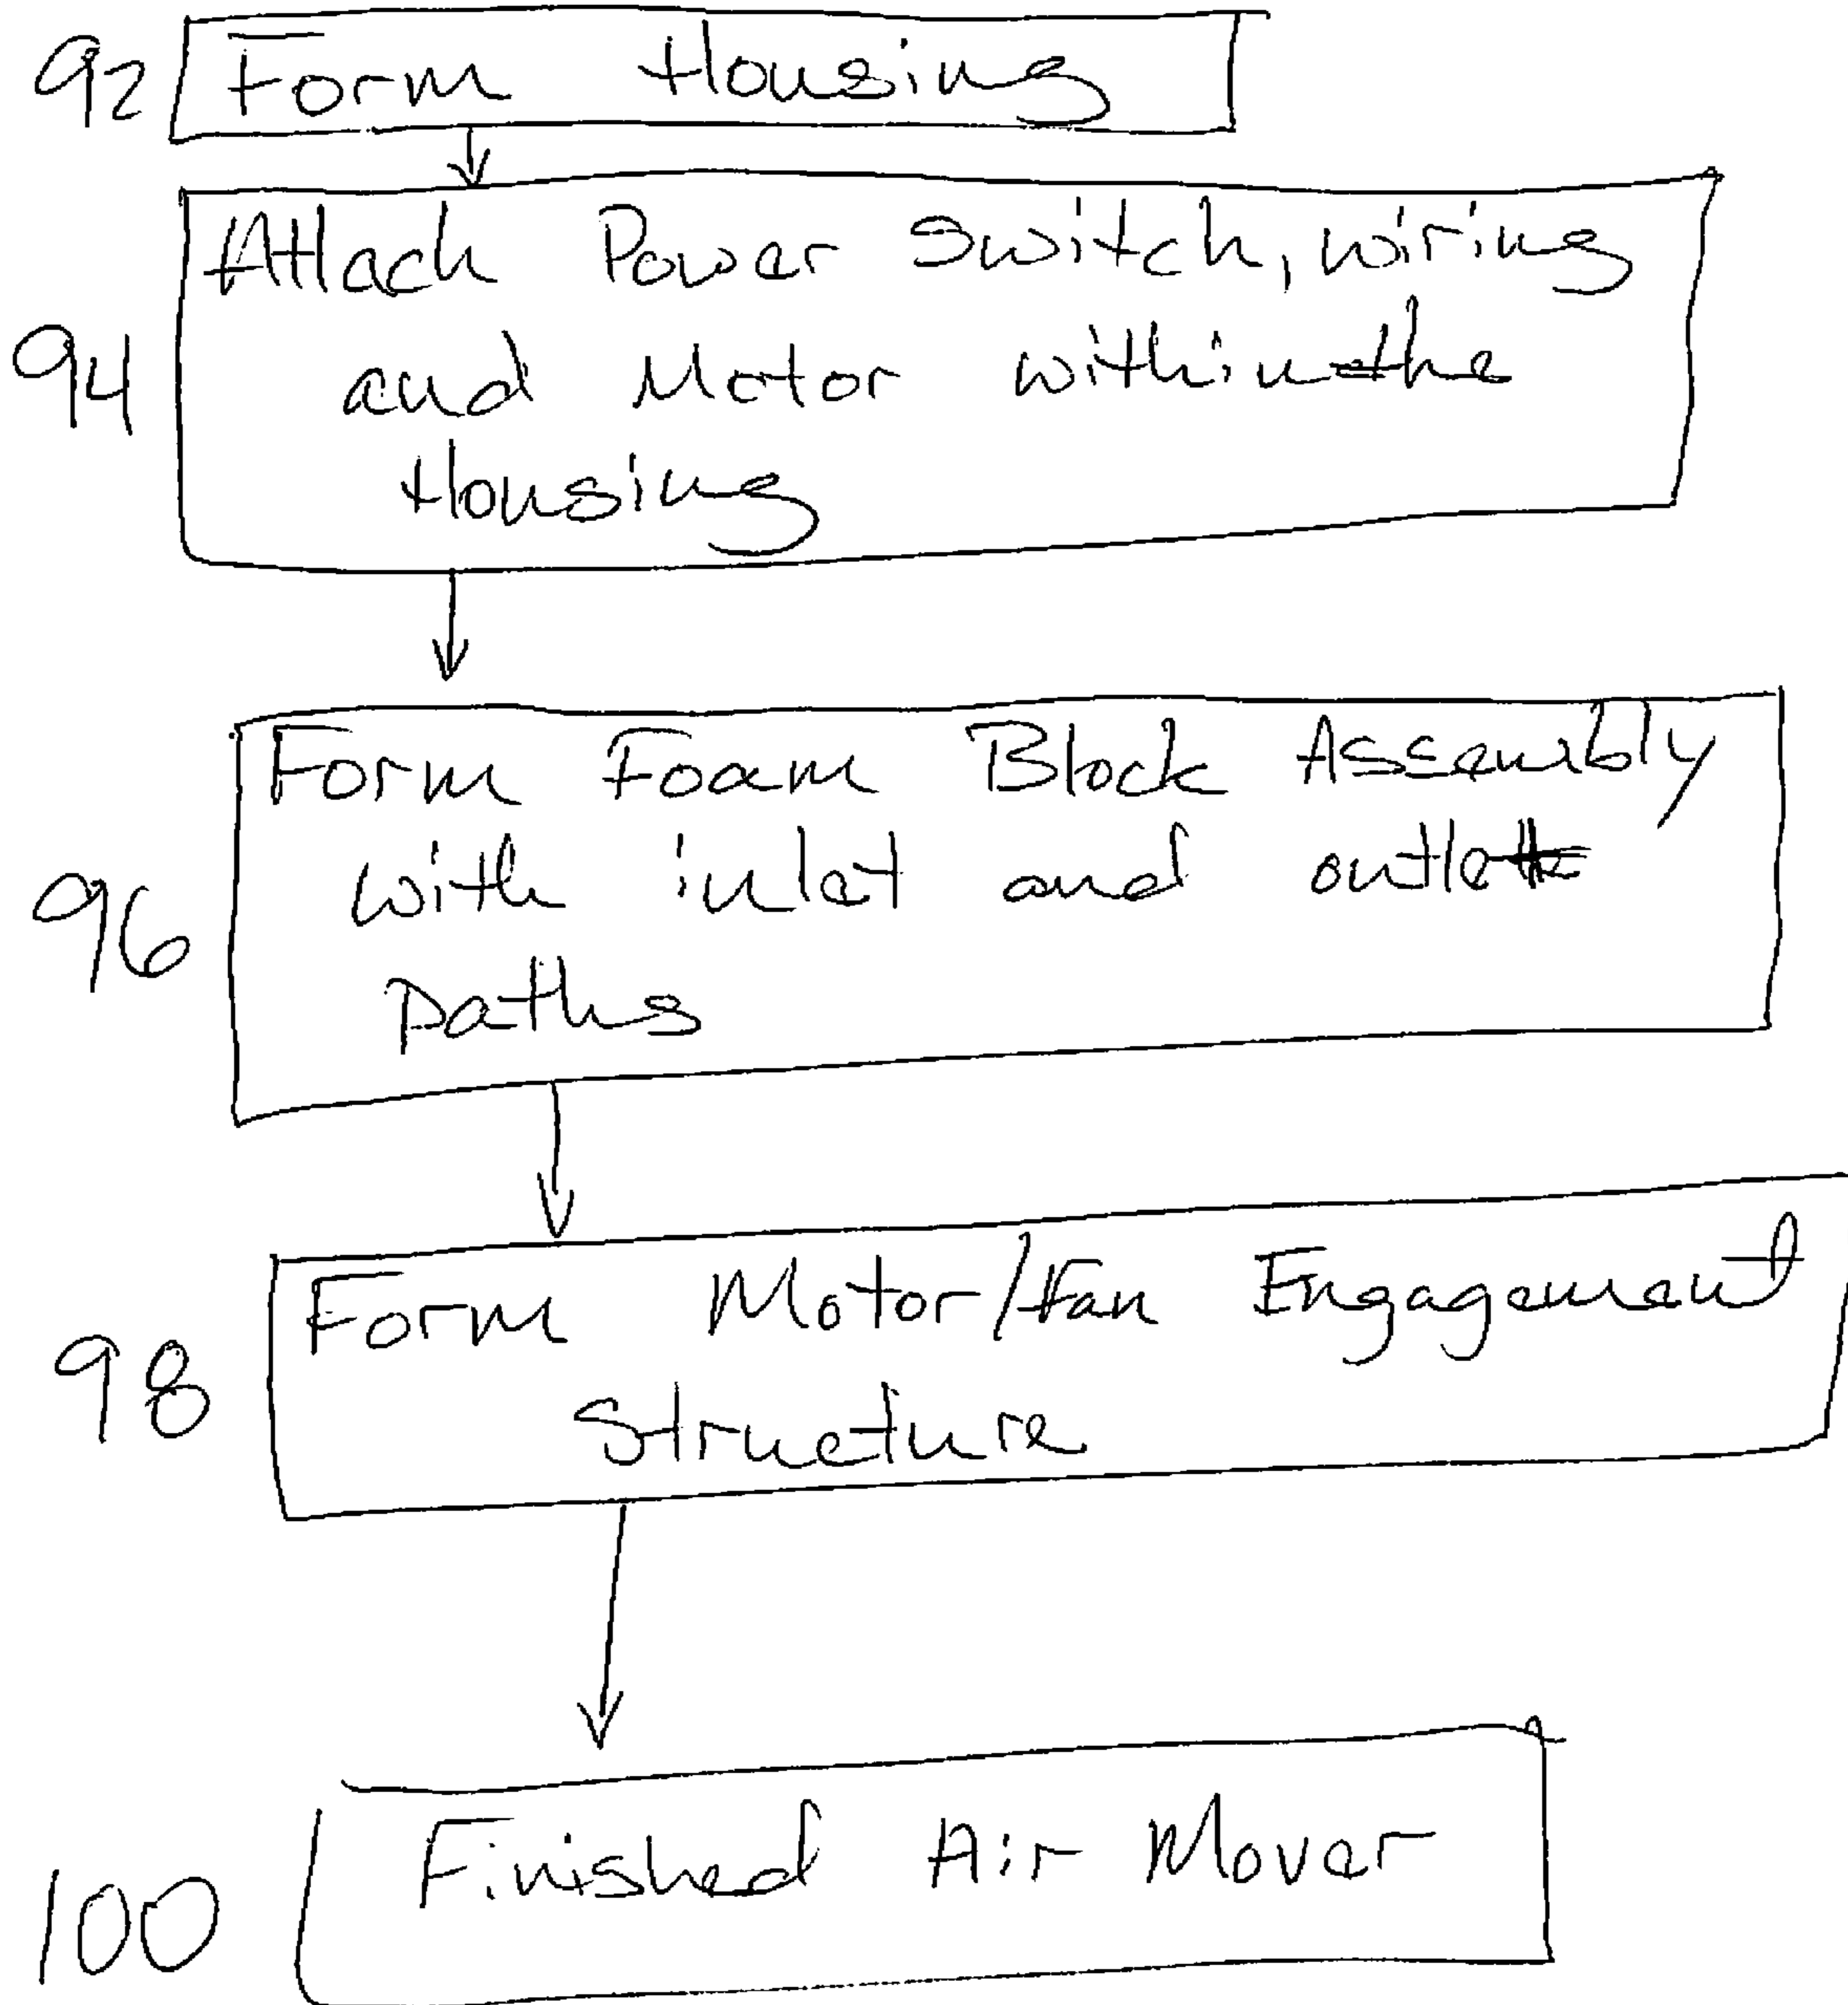 92 Form Housing
Attach Power Switch, wiring
94 and Motor within the
Housing
Form Foam Block Assembly
96 with inlet and outlet
Paths
Form Motor/Fan Engagement
98 Structure
100 Finished Air Mover